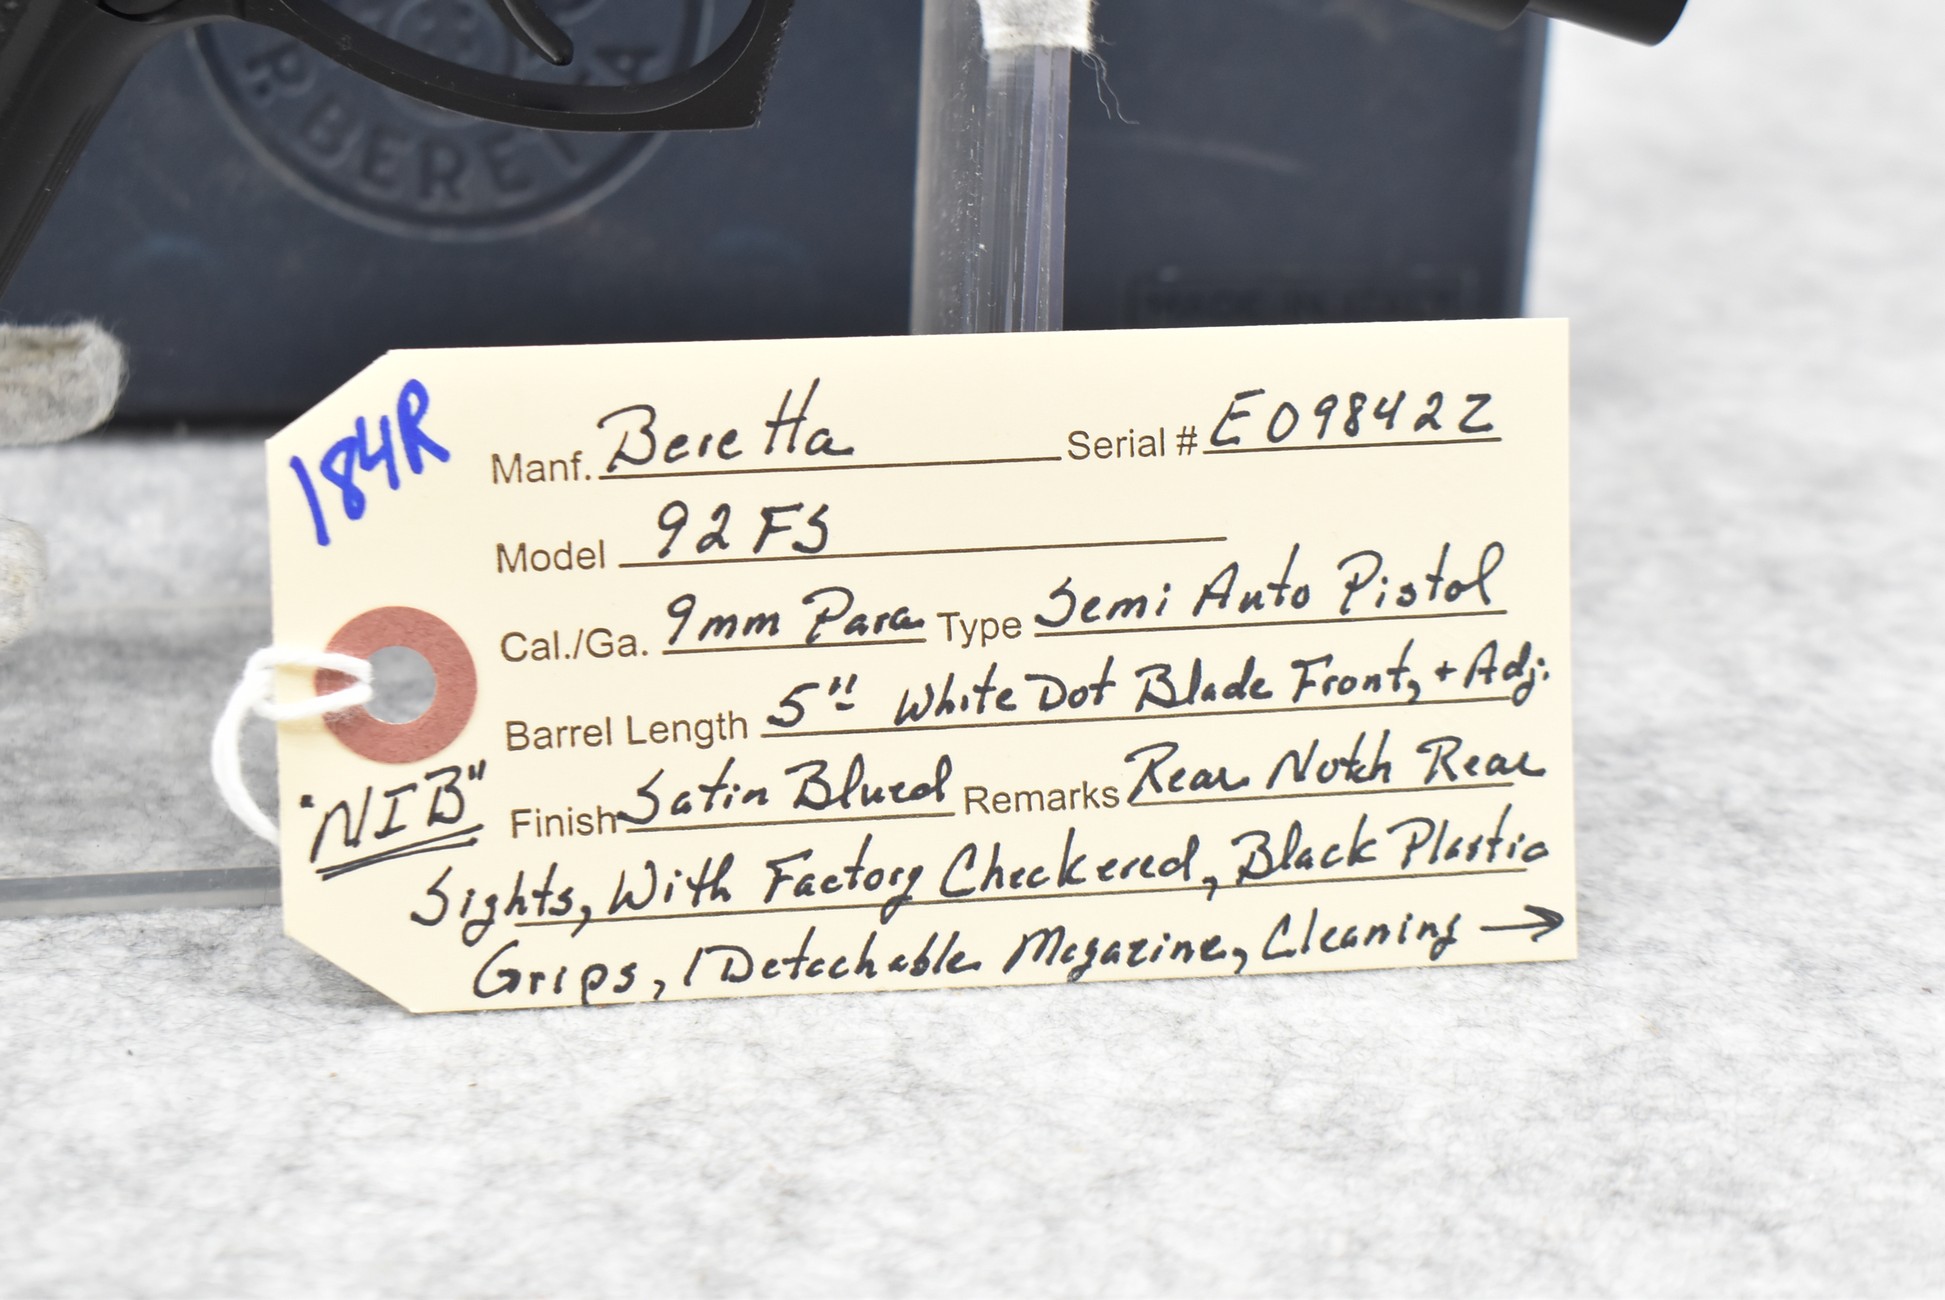 P. BERETTA
184R
Manf. Beretta Serial # E09842Z
Model 92FS
Cal./Ga. 9mm Para Type Semi Auto Pistol
Barrel Length 5" White Dot Blade Front, + Adj.
"NIB" Finish Satin Blued Remarks Rear Notch Rear
Sights, With Factory Checkered, Black Plastic
Grips, 1 Detachable Magazine, Cleaning →